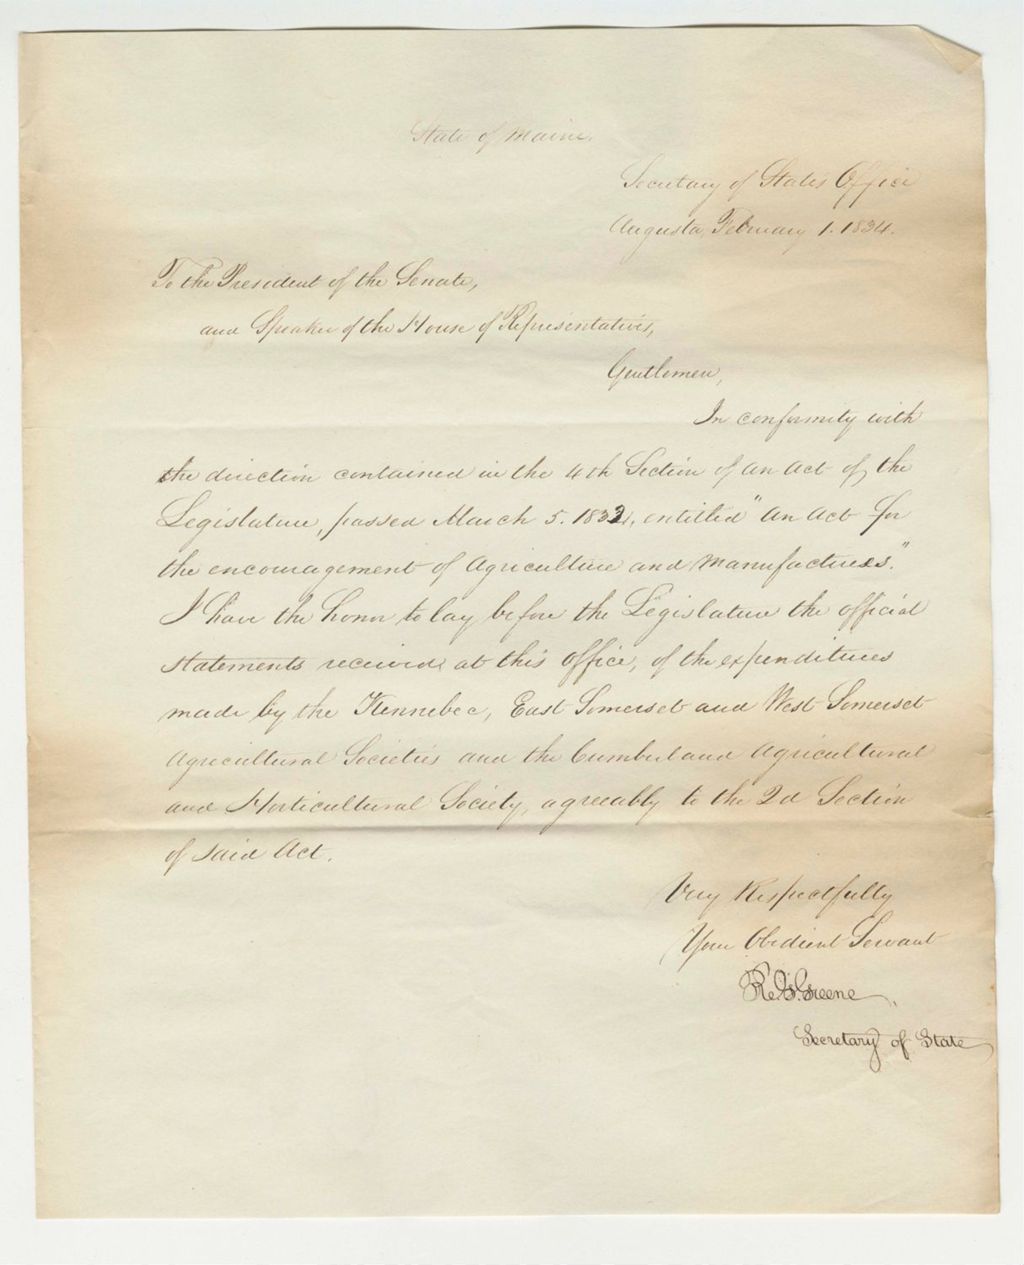 State of Maine.
Secretary of States Office
Augusta, February 1. 1834.
To the President of the Senate,
and Speaker of the House of Representatives,
Gentlemen,
In conformity with
the direction contained in the 4th Section of an Act of the
Legislature, passed March 5. 1832, entitled "An Act for
the encouragement of Agriculture and Manufactures."
I have the honor to lay before the Legislature the official
statements received at this Office, of the expenditures
made by the Kennebec, East Somerset and West Somerset
Agricultural Societies and the Cumberland Agricultural
and Horticultural Society, agreeably to the 2d Section
of said Act.
Very Respectfully
Your Obedient Servant
Greene,
Secretary of State